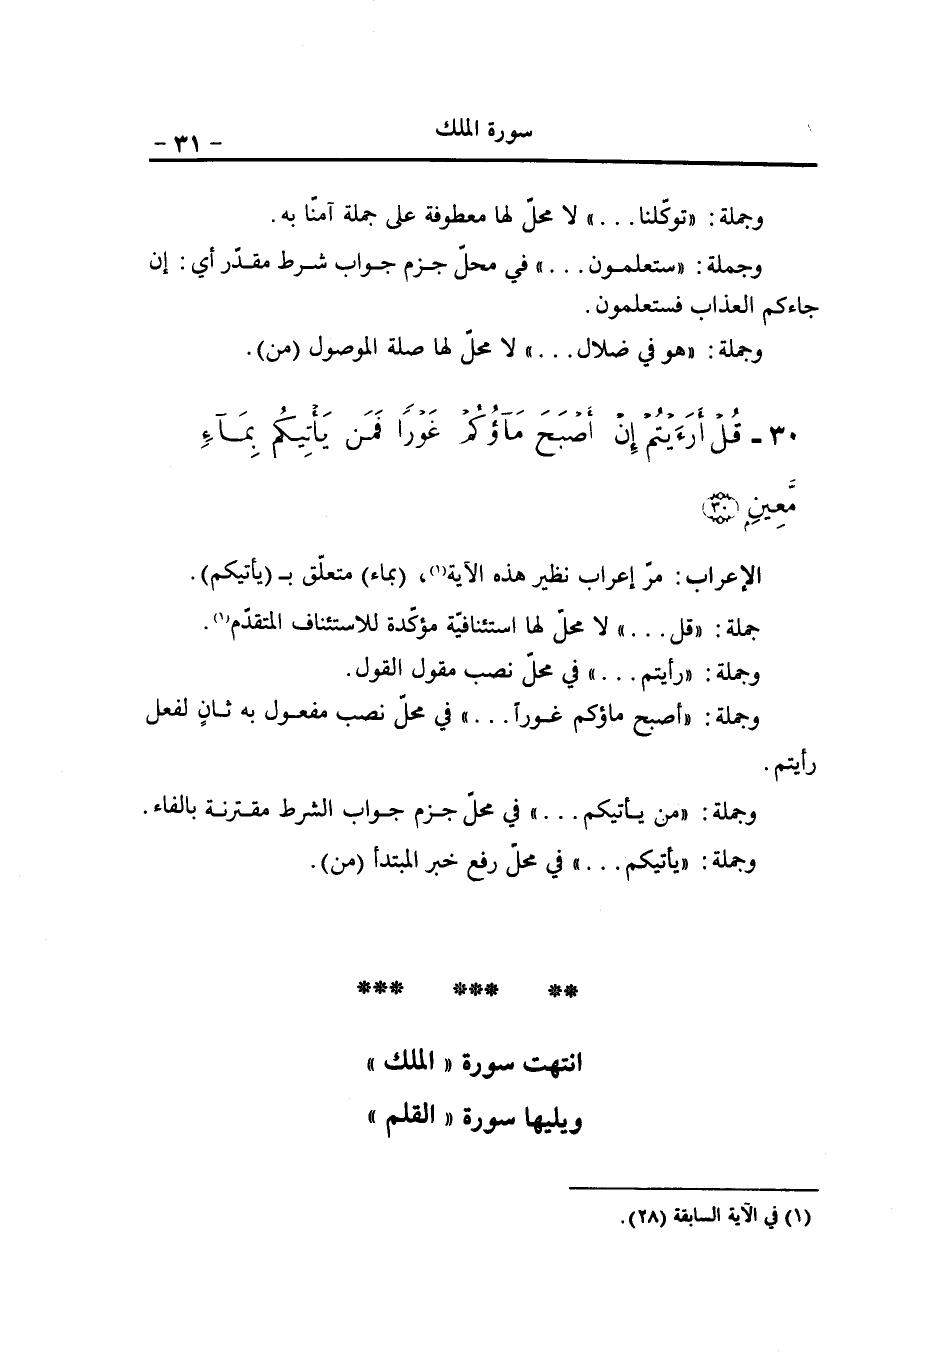 سورة الملك
- ٣١ -
وجملة: «توكّلنا...» لا محلّ لها معطوفة على جملة آمنّا به.
وجملة: «ستعلمون...» في محلّ جزم جواب شرط مقدّر أي: إن
جاءكم العذاب فستعلمون.
وجملة: «هو في ضلال...» لا محلّ لها صلة الموصول (من).
٣٠ - قُلْ أَرَءَيْتُمْ إِنْ أَصْبَحَ مَآؤُكُمْ غَوْرًا فَمَن يَأْتِيكُم بِمَآءٍ
مَّعِينٍ ۝٣٠
الإعراب: مرّ إعراب نظير هذه الآية(١)، (بماء) متعلّق بـ (يأتيكم).
جملة: «قل...» لا محلّ لها استئنافيّة مؤكّدة للاستئناف المتقدّم(١).
وجملة: «رأيتم...» في محلّ نصب مقول القول.
وجملة: «أصبح ماؤكم غوراً...» في محلّ نصب مفعول به ثانٍ لفعل
رأيتم.
وجملة: «من يأتيكم...» في محلّ جزم جواب الشرط مقترنة بالفاء.
وجملة: «يأتيكم...» في محلّ رفع خبر المبتدأ (من).
** *** ***
انتهت سورة « الملك »
ويليها سورة « القلم »
(١) في الآية السابقة (٢٨).